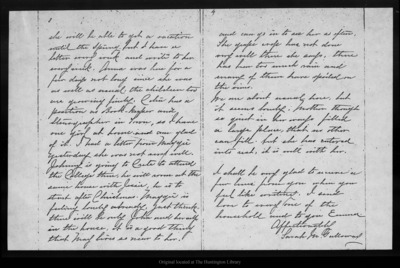 3
she will be able to get a vacation
until the Spring, but I have a
letter every week and write to her
every week. Anna was here for a
few days not long since she was
as well as usual the children too
are growing finely. Celia has a
position as Book keeper and
Stenographer in town, so I have
one girl at home and am glad
of it. I had a letter from Maggie
yesterday she was not very well.
is going to to attend
the College there he will room at the
same house with he is to
start after Christmas. Maggie is
feeling lonely already. Just think,
there will be only John and herself
in the house. It is a good thing
that May lives as near to her,
4
and can go in to see her so often.
The grape crop has not done
very well there she says, there
has been too much rain and
many of them have spoiled on
the vines.
We are about usual here, but
it seems lonely. Mother though
so quiet in her way, filled
a large place, that no other
can fill, but she has entered
into rest, it is well with her.
I shall be very glad to receive a
few lines from you when you
feel like writing. I send
love to every one of the
household and to you
Affectionately
Sarah M. Galloway
Original located at The Huntington Library